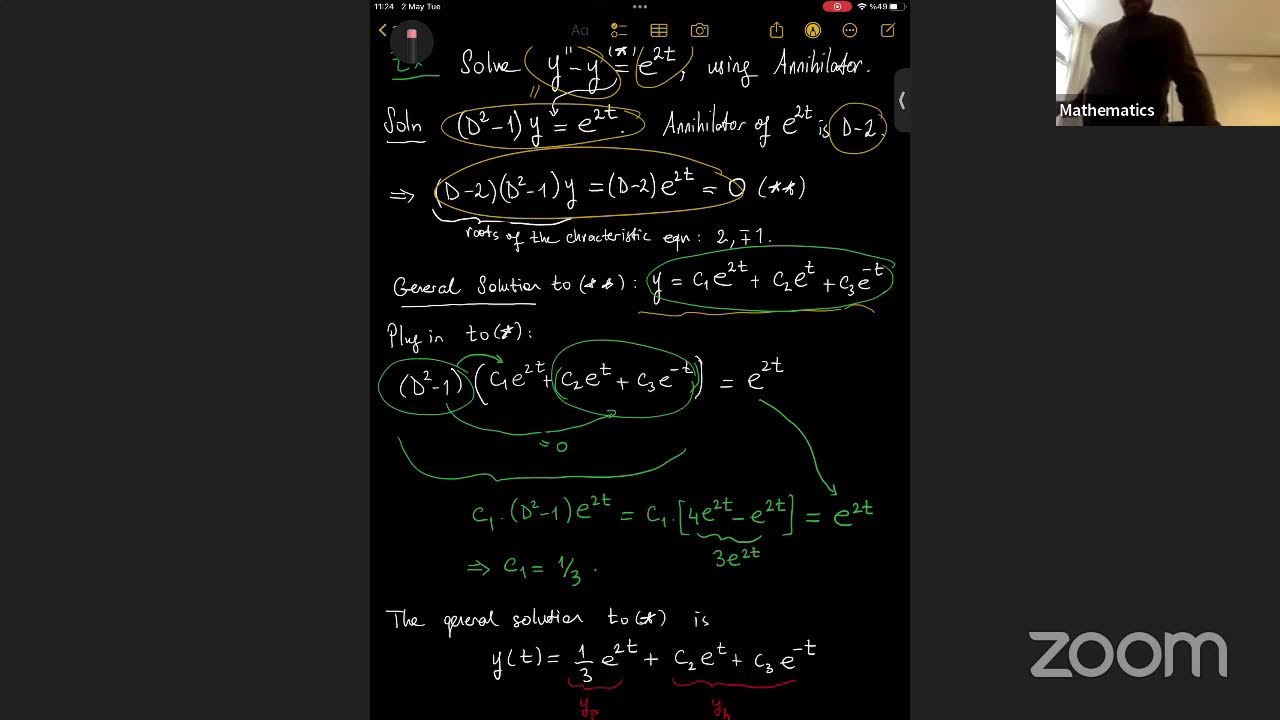 11:24 2 May Tue
%49
Aa
Ex Solve y'' - y (*)= e^{2t}, using Annihilator.
Mathematics
Soln (D²-1) y = e^{2t}. Annihilator of e^{2t} is D-2.
⇒ (D-2)(D²-1) y = (D-2) e^{2t} = 0 (**)
roots of the chracteristic eqn: 2, ∓1.
General Solution to (**): y = C₁e^{2t} + C₂e^{t} + C₃e^{-t}
Plug in to (*):
(D²-1) (C₁e^{2t} + C₂e^{t} + C₃e^{-t}) = e^{2t}
= 0
C₁ . (D²-1) e^{2t} = C₁ . [4e^{2t} - e^{2t}] = e^{2t}
3e^{2t}
⇒ C₁ = 1/3 .
The general solution to (*) is
y(t) = 1/3 e^{2t} + C₂e^{t} + C₃e^{-t}
y_p y_h
zoom